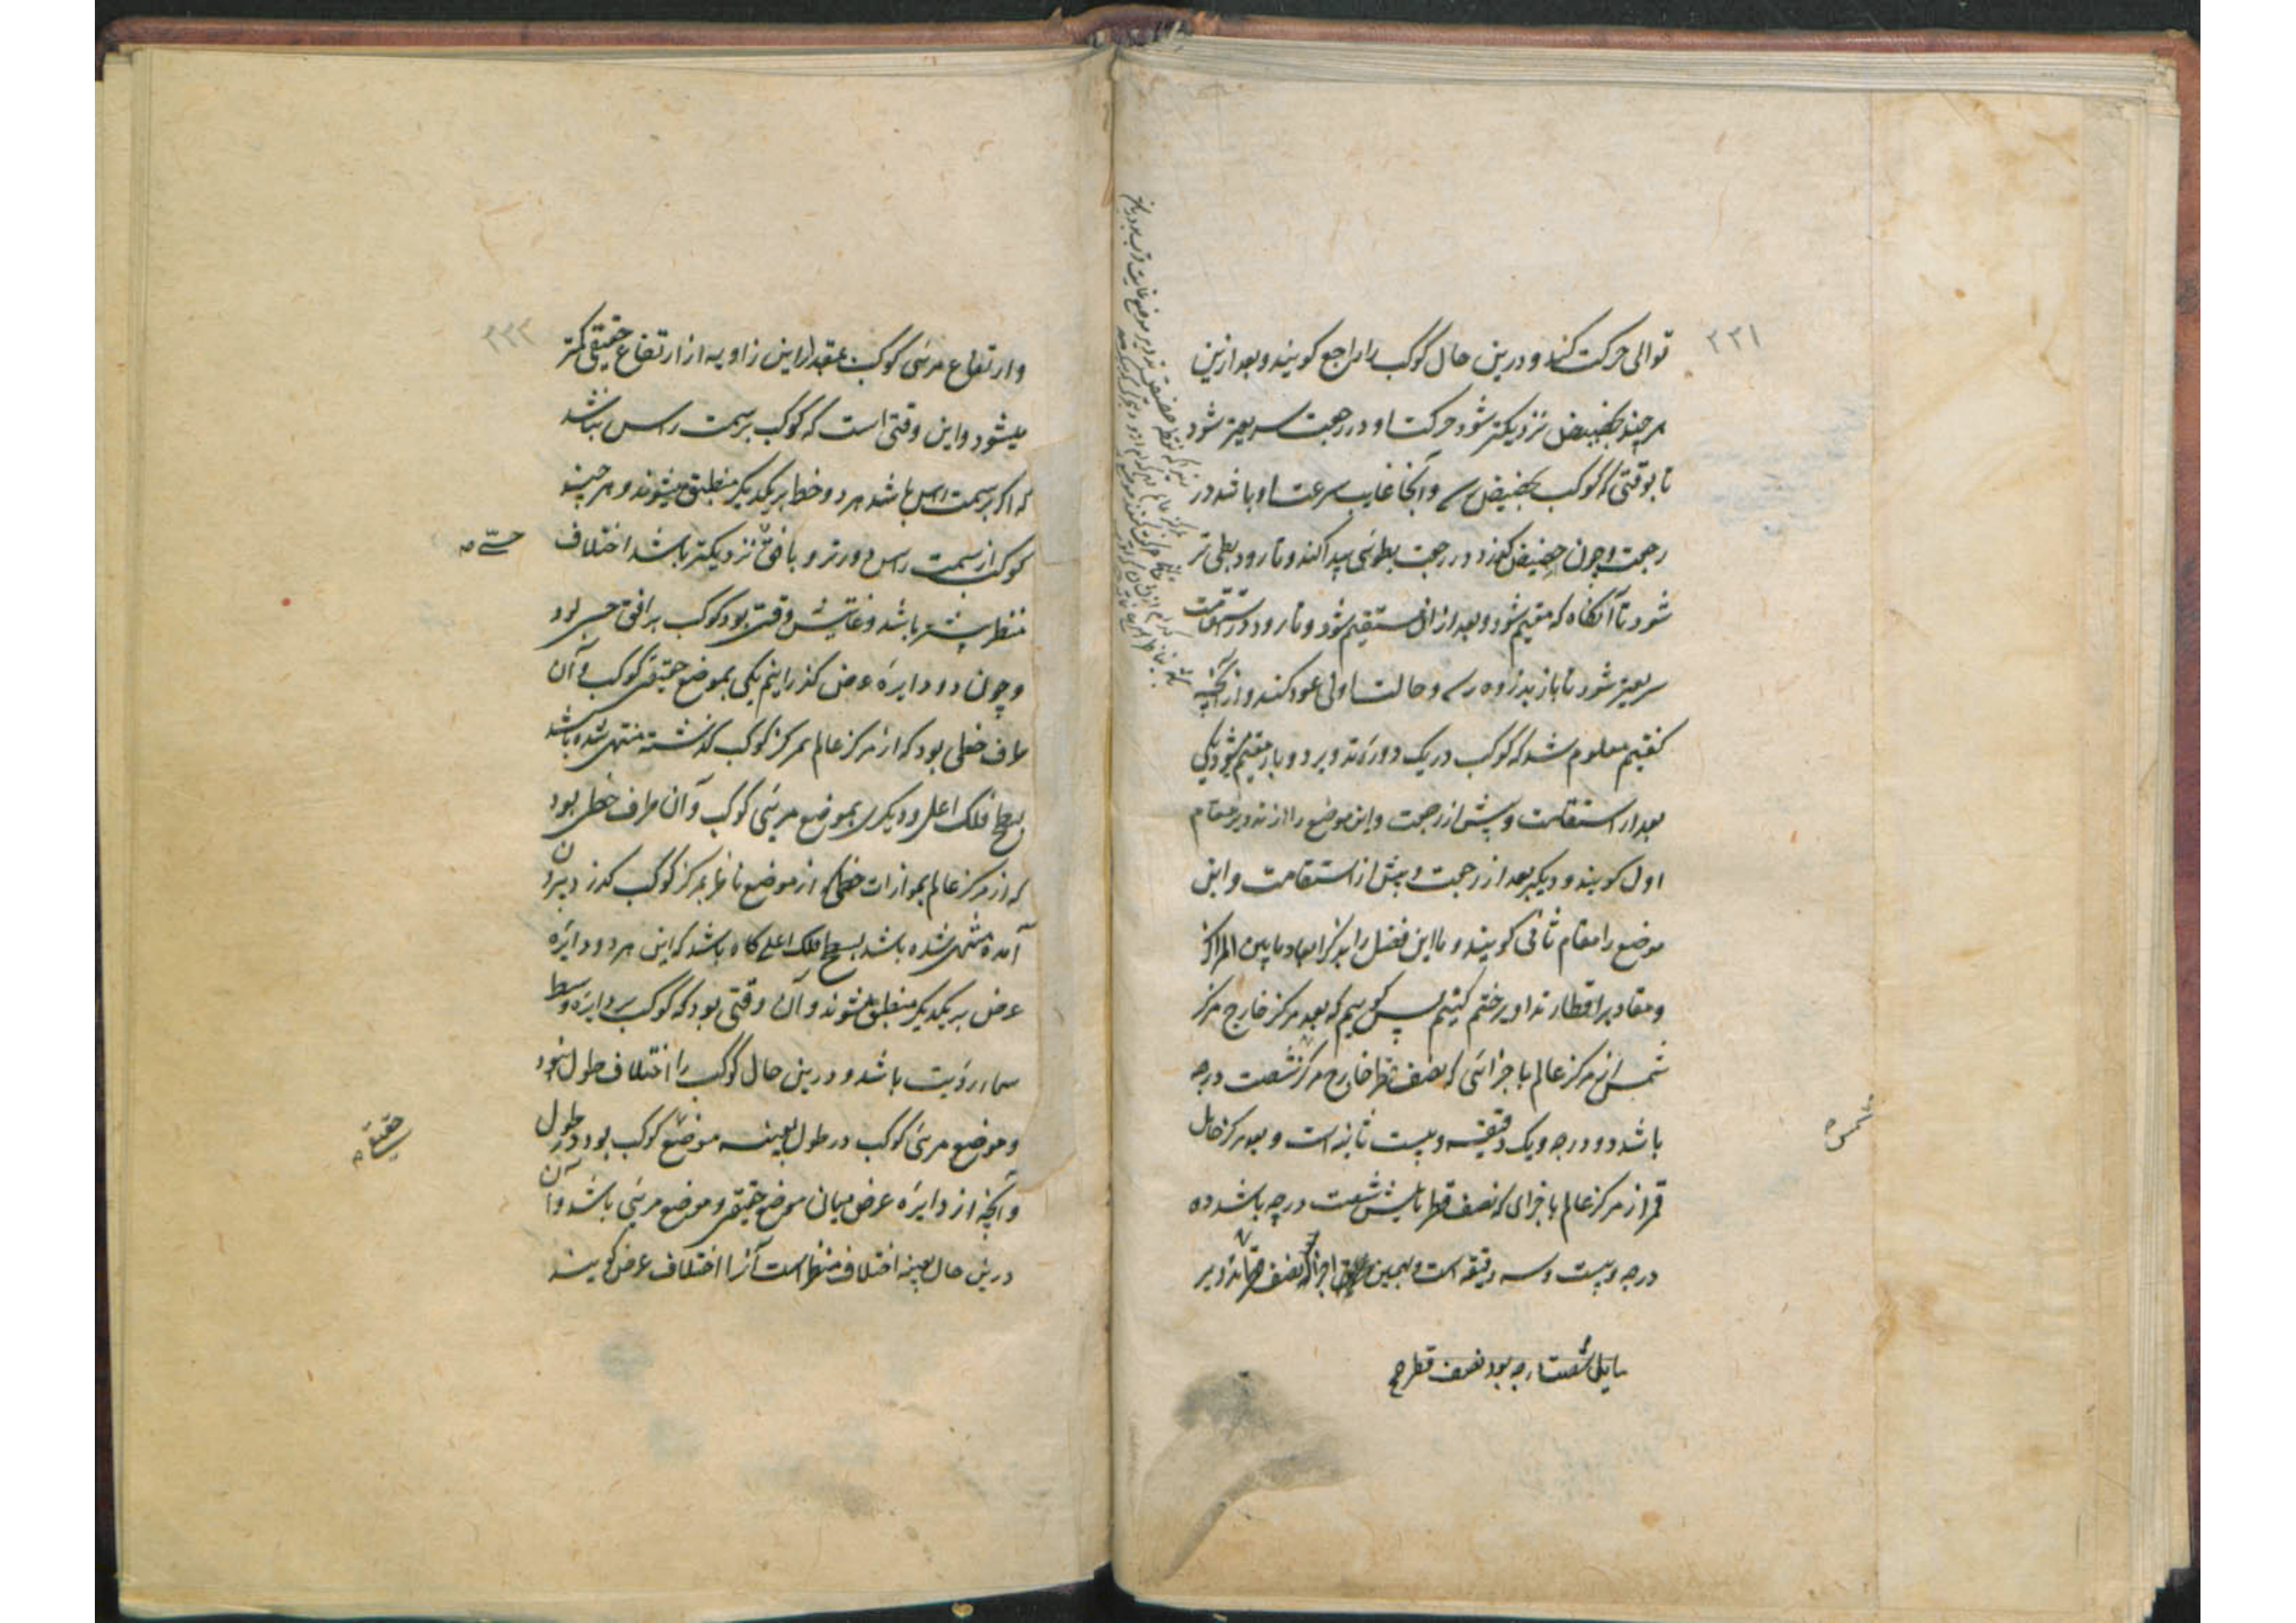 ۲۲۱
توالی حرکت کند و درین حال کوکب را راجع کویند و بعد ازین
هر چند بحضیض نزدیکتر شود حرکت او در رجعت سریعتر شود
تا بوقتی که کوکب بحضیض رسد و آنجا غایت سرعت او باشد در
رجعت و چون حضیض بگذرد در رجعت بطوئی پیدا کند و تا رود بطی تر
شود تا آنکاه که مقیم شود و بعد از آن مستقیم شود و تا رود در استقامت
سریعتر شود تا باز بذروه رسد و حالت اولی عود کند و از آنچه
کفتیم معلوم شد که کوکب در یک دوره تدویر دو بار مقیم شود یکی
بعد از استقامت و پیش از رجعت و این موضع را از تدویر مقام
اول کویند و دیکر بعد از رجعت و پیش از استقامت و این
موضع را مقام ثانی کویند و ما این فصل را بذکر ابعاد ما بین المراکز
و مقادیر اقطار تداویر ختم کنیم پس کوییم که بعد مرکز خارج مرکز
شمس از مرکز عالم باجزائی که نصف قطر خارج مرکز شصت درجه
باشد دو درجه و یک دقیقه و بیست ثانیه است و بعد مرکز حامل
قمر از مرکز عالم باجزای که نصف قطر مایلش شصت درجه باشد ده
درجه و بیست و سه دقیقه است و بهمین اجزا که نصف قطر تدویر
مایل شصت درجه بود نصف قطر
شمس
۲۲۲
و ارتفاع مرئی کوکب بمقدار این زاویه از ارتفاع حقیقی کمتر
میشود و این وقتی است که کوکب بر سمت راس نباشد
که اکر بر سمت راس باشد هر دو خط بر یکدیکر منطبق میشوند و هر چند
کوکب از سمت راس دورتر و بافق نزدیکتر باشد اختلاف
حسی
منظر بیشتر باشد و غایتش وقتی بود کوکب بر افق حسی بود
و چون دو دایره عرض کذرانیم یکی بموضع حقیقی کوکب و آن
طرف خطی بود که از مرکز عالم بمرکز کوکب کذشته منتهی شده باشد
بسطح فلک اعلی و دیکری بموضع مرئی کوکب و آن طرف خطی بود
که از مرکز عالم بموازات خطی که از موضع ناظر بمرکز کوکب کذرد بیرون
آمده منتهی شده باشد بسطح فلک اعلی کاه باشد که این هر دو دایره
عرض بر یکدیکر منطبق شوند و آن وقتی بود که کوکب بر دایره وسط
سماء رؤیت باشد و درین حال کوکب را اختلاف طول نبود
و موضع مرئی کوکب در طول بعینه موضع کوکب بود در طول
حقیقی
و آنچه از دایره عرض میان موضع حقیقی و موضع مرئی باشد و آن
درین حال بعینه اختلاف منظر است آنرا اختلاف عرض کویند